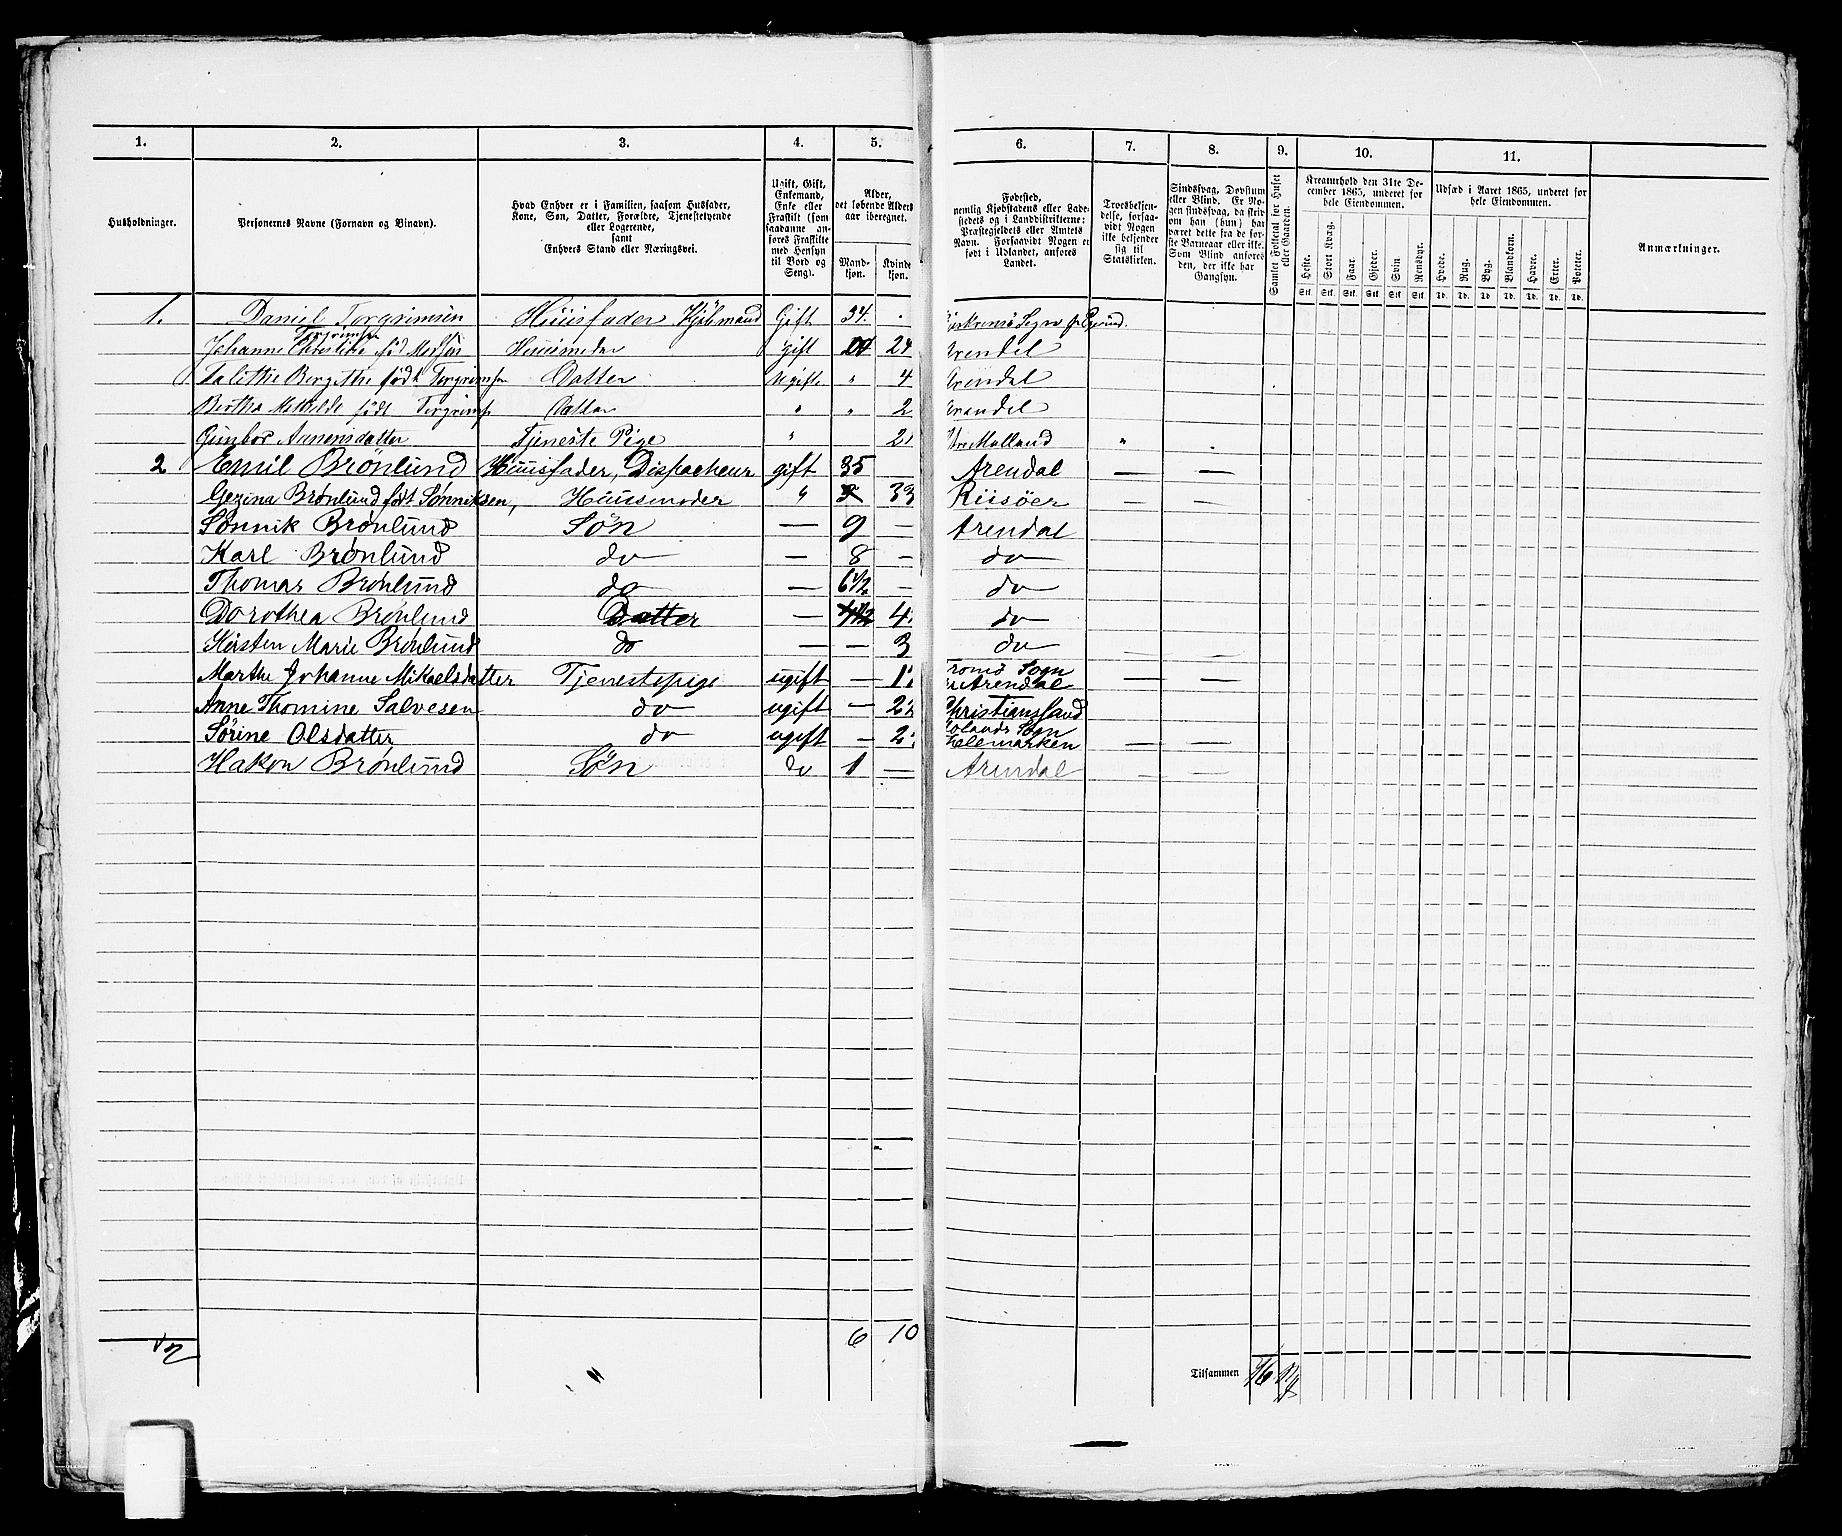 1. 2. 3. 4. 5. 6. 7. 8. 9. 10. 11.
Husholdninger.
Personernes Navne (Fornavn og Binavn).
Hvad Enhver er i Familien, saasom Husfader,
Kone, Søn, Datter, Forældre, Tjenestetyende
eller Logerende,
samt
Enhvers Stand eller Næringsvei.
Ugift, Gift,
Enkemand,
Enke eller
Fraskilt (som
saadanne an-
føres Fraskilte
med Hensyn
til Bord og
Seng).
Alder,
det løbende Alders-
aar iberegnet.
Mand-
kjøn.
Kvinde-
kjøn.
Fødested,
nemlig Kjøbstadens eller Lade-
stedets og i Landdistrikterne:
Præstegjeldets eller Amtets
Navn. Forsaavidt Nogen er
født i Udlandet, anføres
Landet.
Troesbekjen-
delse, forsaa-
vidt Nogen
ikke bekjender
sig til
Statskirken.
Sindssvag, Døvstum
eller Blind. Er No-
gen sindssvag, da skriv
om han (hun) har
været dette fra de før-
ste Barneaar eller ikke.
Som Blind anføres
den, der ikke har
Gangsyn.
Samlet Folketal for Huset
eller Gaarden.
Kreaturhold den 31te De-
cember 1865, underet for
hele Eiendommen.
Heste. Stort Kvæg. Faar. Gjeder. Svin. Rensdyr.
Stk. Stk. Stk. Stk. Stk. Stk.
Udsæd i Aaret 1865, underet for
hele Eiendommen.
Hvede. Rug. Byg. Blandkorn. Havre. Erter. Poteter.
Td. Td. Td. Td. Td. Td. Td.
Anmærkninger.
1. Daniel Torgrimsen Huusfader Kjøbmand Gift 34.
Torgrimsen
Johanne Christine fød Madsen Huusmoder Gift 24 Arendel
Talitte Bergithe født Torgrimsen Datter Ugifte " 4 Arendal
Bertha Mathilde født Torgrims Datter " " 2 Arendel
Gunbor Aanensdatter Tjeneste Pige " 2 Øvre Malland "
2 Emil Brönlund Huusfader, Dispacheur gift 35 Arendal — —
Gezina Brønlund født Sønniksen, Huusmoder " 33 Riisöer — —
Sönnik Brönlund Søn — 9 — Arendal
Karl Brønlund do — 8 — do
Thomas Brønlund do — 6 1/2 — do
Dorothea Brønlund Datter — 4 do
Kirsten Marie Brønlund do — — 3 do — —
Marthe Johanne Mikaelsdatter Tjenestepige ugift — 1 Tromø Sogn
v Arendal — —
Anne Thomine Salvesen do ugift — 2 Christianssand
Sörine Olsdatter do ugift — 2 Sogn
Telemarken — —
Hakon Brønlund Søn do 1 — Arendal — —
6 10
Tilsammen 16